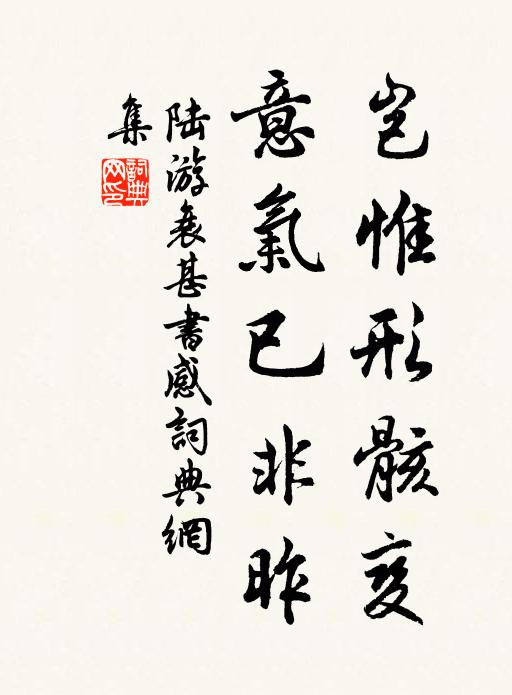 岂惟形骸变
意氣已非昨
陆游衰甚書感詞典網
集
詞典
网印